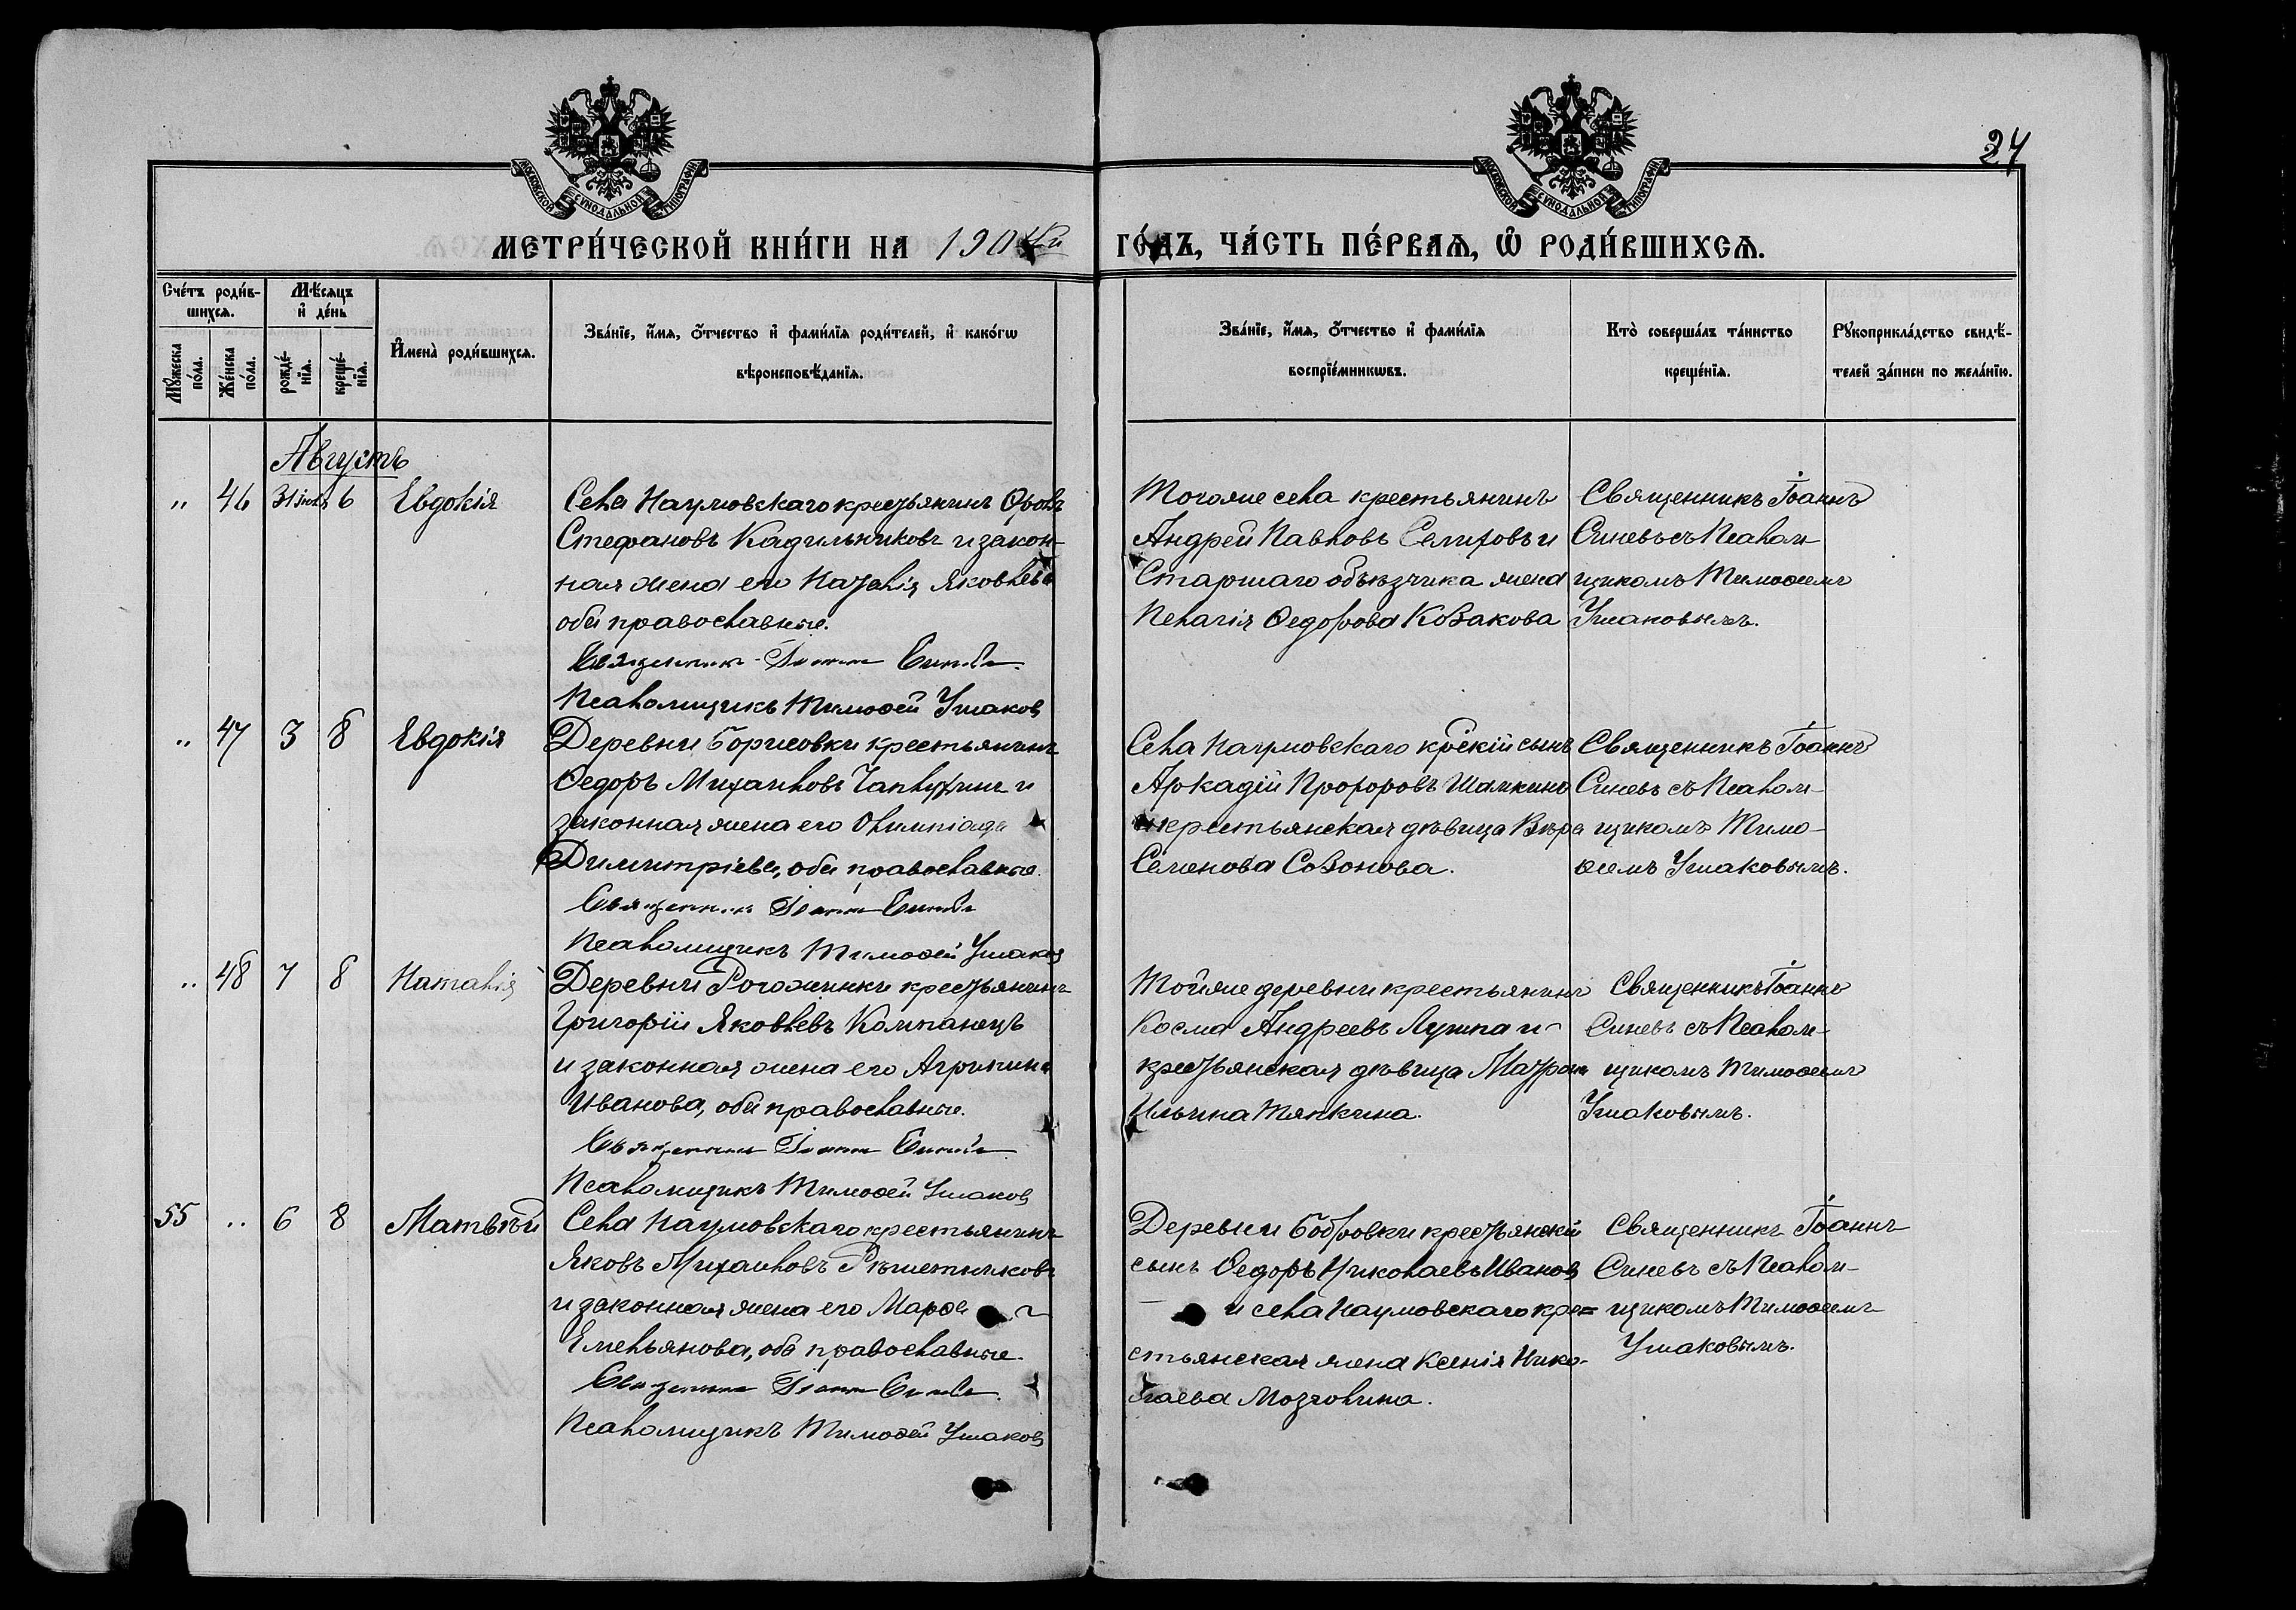 24
МОСКОВСКОЙ СѴНОДАЛЬНОЙ ТИПОГРАФІИ
МОСКОВСКОЙ СѴНОДАЛЬНОЙ ТИПОГРАФІИ
МЕТРИ́ЧЕСКОЙ КНИ́ГИ НА 190
ГО́ДЪ, ЧА́СТЬ ПЕ́РВАѦ, Ѡ РОДИ́ВШИХСѦ.
Сче́тъ роди́в-
шихсѧ.
Мꙋ́жеска по́ла.
Же́нска по́ла.
Мѣ́сѧцъ и҆ де́нь
рожде́-нїѧ.
креще́-нїѧ.
И҆мена̀ роди́вшихсѧ.
Зва́нїе, и҆́мѧ, ѻ҆́тчество и҆ фами́лїѧ роди́телей, и҆ како́гѡ
вѣроисповѣ́данїѧ.
Зва́нїе, и҆́мѧ, ѻ҆́тчество и҆ фами́лїѧ
воспрїе́мникѡвъ.
Кто̀ соверша́лъ та́инство
креще́нїѧ.
Рꙋкоприкла́дство свидѣ́-
телей за́писи по жела́нїю.
Августъ
" 46 31 іюля 6 Евдокія
Села Наумовскаго крестьянинъ Фролъ
Стефановъ Кадильниковъ и закон-
ная жена его Наталія Яковлева
оба православные.
Священникъ Іоаннъ Синевъ
Псаломщикъ Тимоѳей Ушаковъ
Тогоже села крестьянинъ
Андрей Павловъ Селиховъ и
Старшаго объѣздчика жена
Пелагія Ѳедорова Козакова
Священникъ Іоаннъ
Синевъ съ Псалом-
щикомъ Тимоѳеемъ
Ушаковымъ.
" 47 3 8 Евдокія
Деревни Борисовки крестьянинъ
Ѳедоръ Михаиловъ и
законная жена его Олимпіада
Димитріева, оба православные.
Священникъ Іоаннъ Синевъ
Псаломщикъ Тимоѳей Ушаковъ
Села Наумовскаго кр̃скій сынъ
Аркадій Прохоровъ Шамкинъ
и крестьянская дѣвица Вѣра
Семенова Созонова.
Священникъ Іоаннъ
Синевъ съ Псалом-
щикомъ Тимо-
ѳеемъ Ушаковымъ.
" 48 7 8 Наталія
Деревни Рогожинки крестьянинъ
Григорій Яковлевъ Компанецъ
и законная жена его Агрипина
Иванова, оба православные.
Священникъ Іоаннъ Синевъ
Псаломщикъ Тимоѳей Ушаковъ
Тойже деревни крестьянинъ
Косма Андреевъ и
крестьянская дѣвица Матрона
Ильина Тяпкина.
Священникъ Іоаннъ
Синевъ съ Псалом-
щикомъ Тимоѳеемъ
Ушаковымъ.
55 " 6 8 Матвѣй
Села Наумовскаго крестьянинъ
Яковъ Михаиловъ Рѣшетниковъ
и законная жена его Марѳа
Емельянова, оба православные.
Священникъ Іоаннъ Синевъ
Псаломщикъ Тимоѳей Ушаковъ
Деревни Бобровки крестьянскій
сынъ Ѳедоръ Николаевъ Ивановъ
и села Наумовскаго кре=
стьянская жена Ксенія Нико-
лаева Мозголина.
Священникъ Іоаннъ
Синевъ съ Псалом-
щикомъ Тимоѳеемъ
Ушаковымъ.